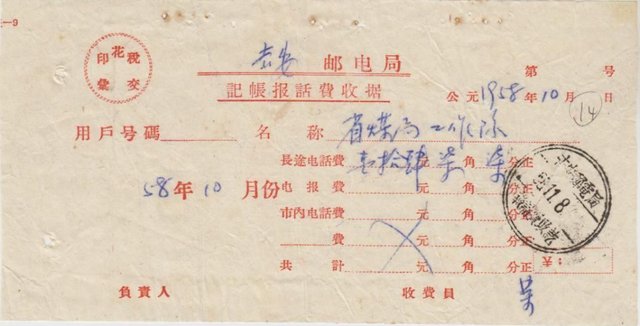 —9
印花税
彙交
吉安 邮电局
第 号
記帳报話費收据
公元1958年10月 日
14
用戶号碼 名称 省煤局工作队
長途电話費 壹拾肆元柒角柒分正
58年10月份 电报費 元 角 分正
市內电話費 元 角 分正
費 元 角 分正
共計 元 角 分正
¥:
58.11.8
負責人 收費員